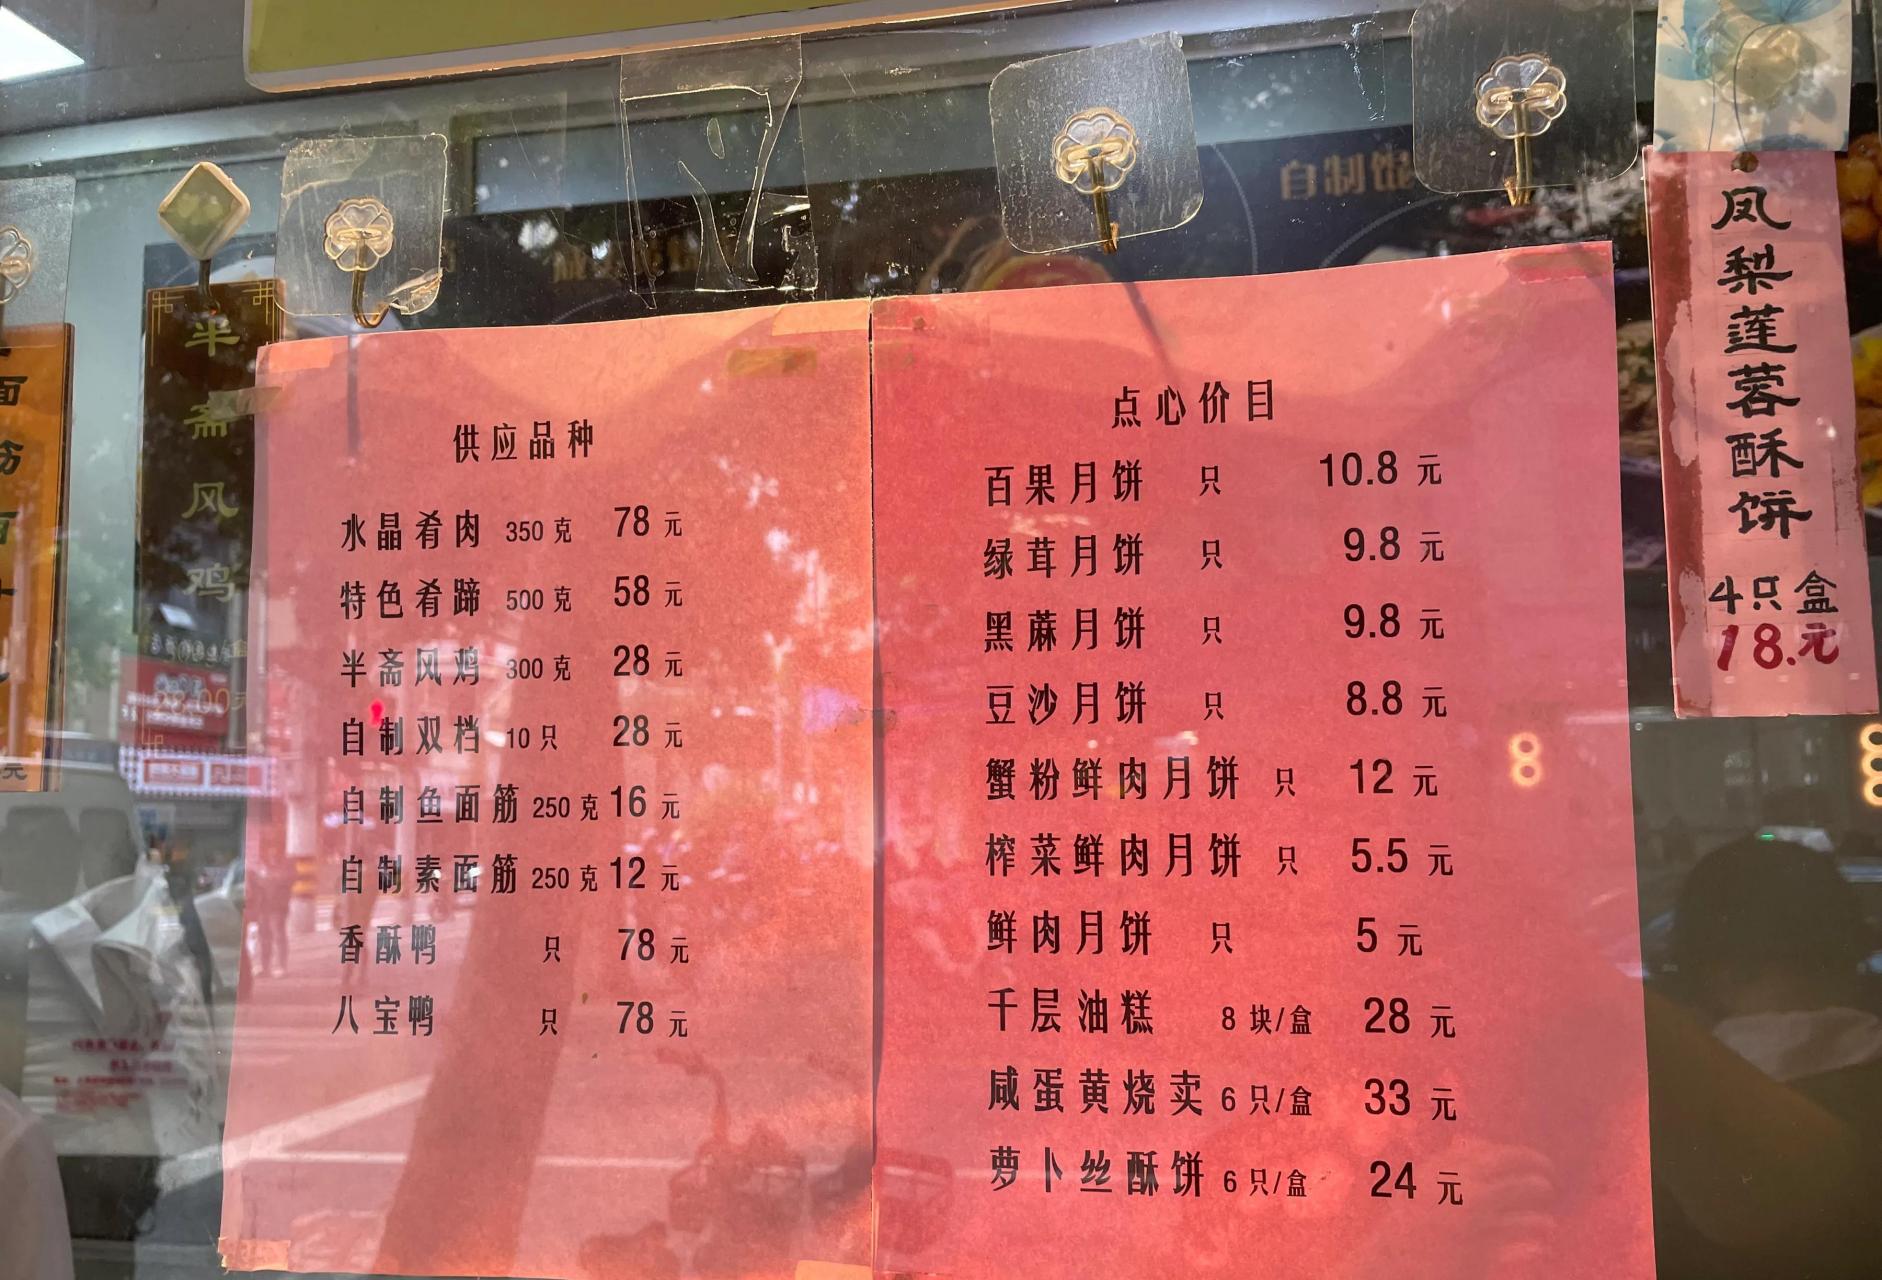 半斋风鸡
供应品种
水晶肴肉 350克 78元
特色肴蹄 500克 58元
半斋风鸡 300克 28元
自制双档 10只 28元
自制鱼面筋 250克 16元
自制素面筋 250克 12元
香酥鸭 只 78元
八宝鸭 只 78元
自制馄
点心价目
百果月饼 只 10.8元
绿茸月饼 只 9.8元
黑蔴月饼 只 9.8元
豆沙月饼 只 8.8元
蟹粉鲜肉月饼 只 12元
榨菜鲜肉月饼 只 5.5元
鲜肉月饼 只 5元
千层油糕 8块/盒 28元
咸蛋黄烧卖 6只/盒 33元
萝卜丝酥饼 6只/盒 24元
凤梨莲蓉酥饼
4只盒
18.元